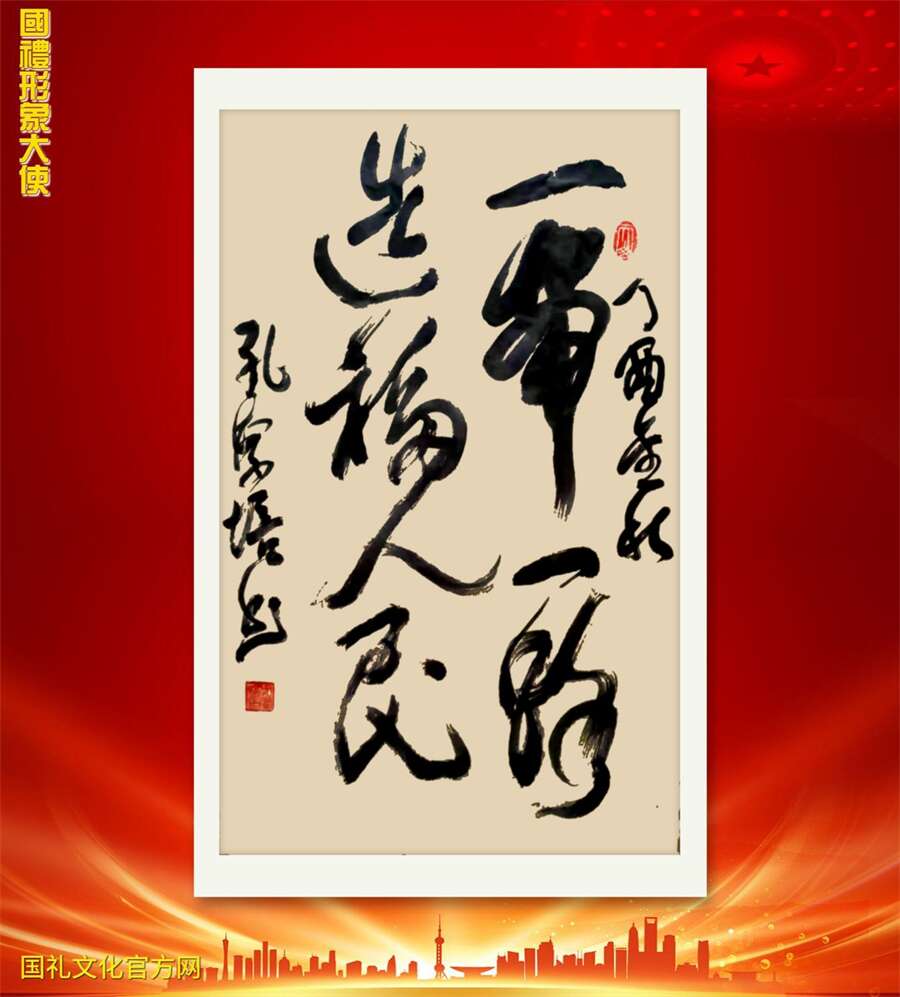 國禮形象大使
丁酉金秋
一带一路
造福人民
孔字培书
国礼文化官方网